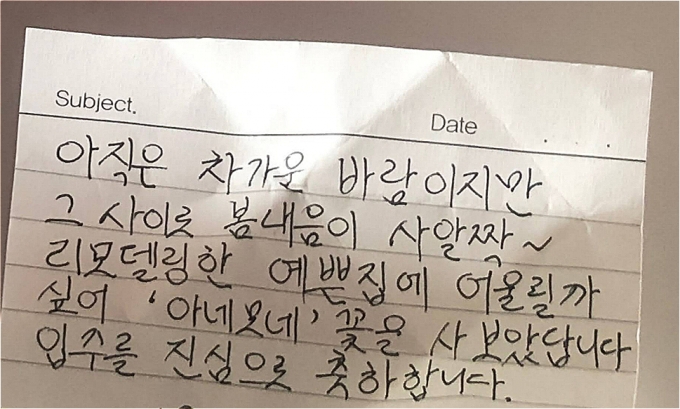 Subject.
Date . . .
아직은 차가운 바람이지만
그 사이로 봄내음이 사알짝~
리모델링한 예쁜집에 어울릴까
싶어 '아네모네' 꽃을 사 보았답니다
입주를 진심으로 축하합니다.